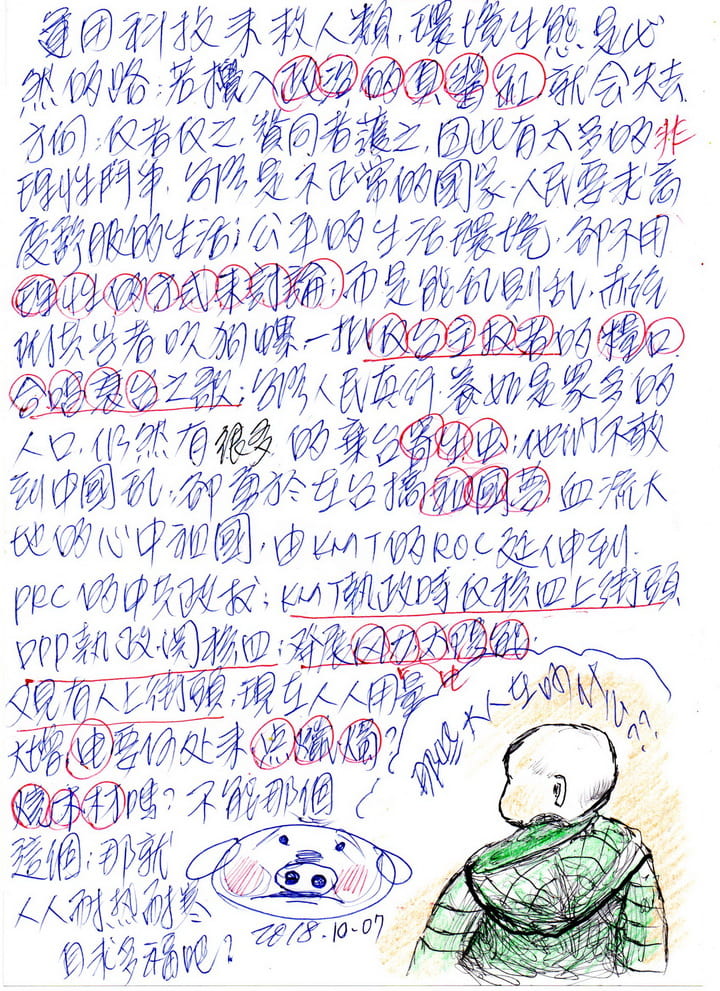 運用科技來救人類,環境生態是必
然的路;若攙入政治的真醬缸就会失去
方向;仅者仅之,贊同者護之,因此有太多的非
理性鬥爭,台灣是不正常的國家,人民要求高
度舒服的生活;公平的生活環境,卻不用
理性的方式來討論;而是能乱則乱,
共告者吹狗螺一批仅台主权者的藉口
合唱衰台之歌;台灣人民真行,養如是眾多的
人口,仍然有很多的棄台寄生虫;他們不敢
到中國乱,卻勇於在台搞祖國夢,血流大
地的心中祖國,由KMT的ROC延伸到
PRC的中共政权;KMT執政時仅核四上街頭
DPP執政,関核四;發展风力太陽能,
又見有人上街頭,現在人人用量
大增,电要何处來点蠟燭?
燒木材嗎?不能那個
這個;那就
人人耐热耐寒
自求多福吧?
那些大人在吵什么??
2018-10-07